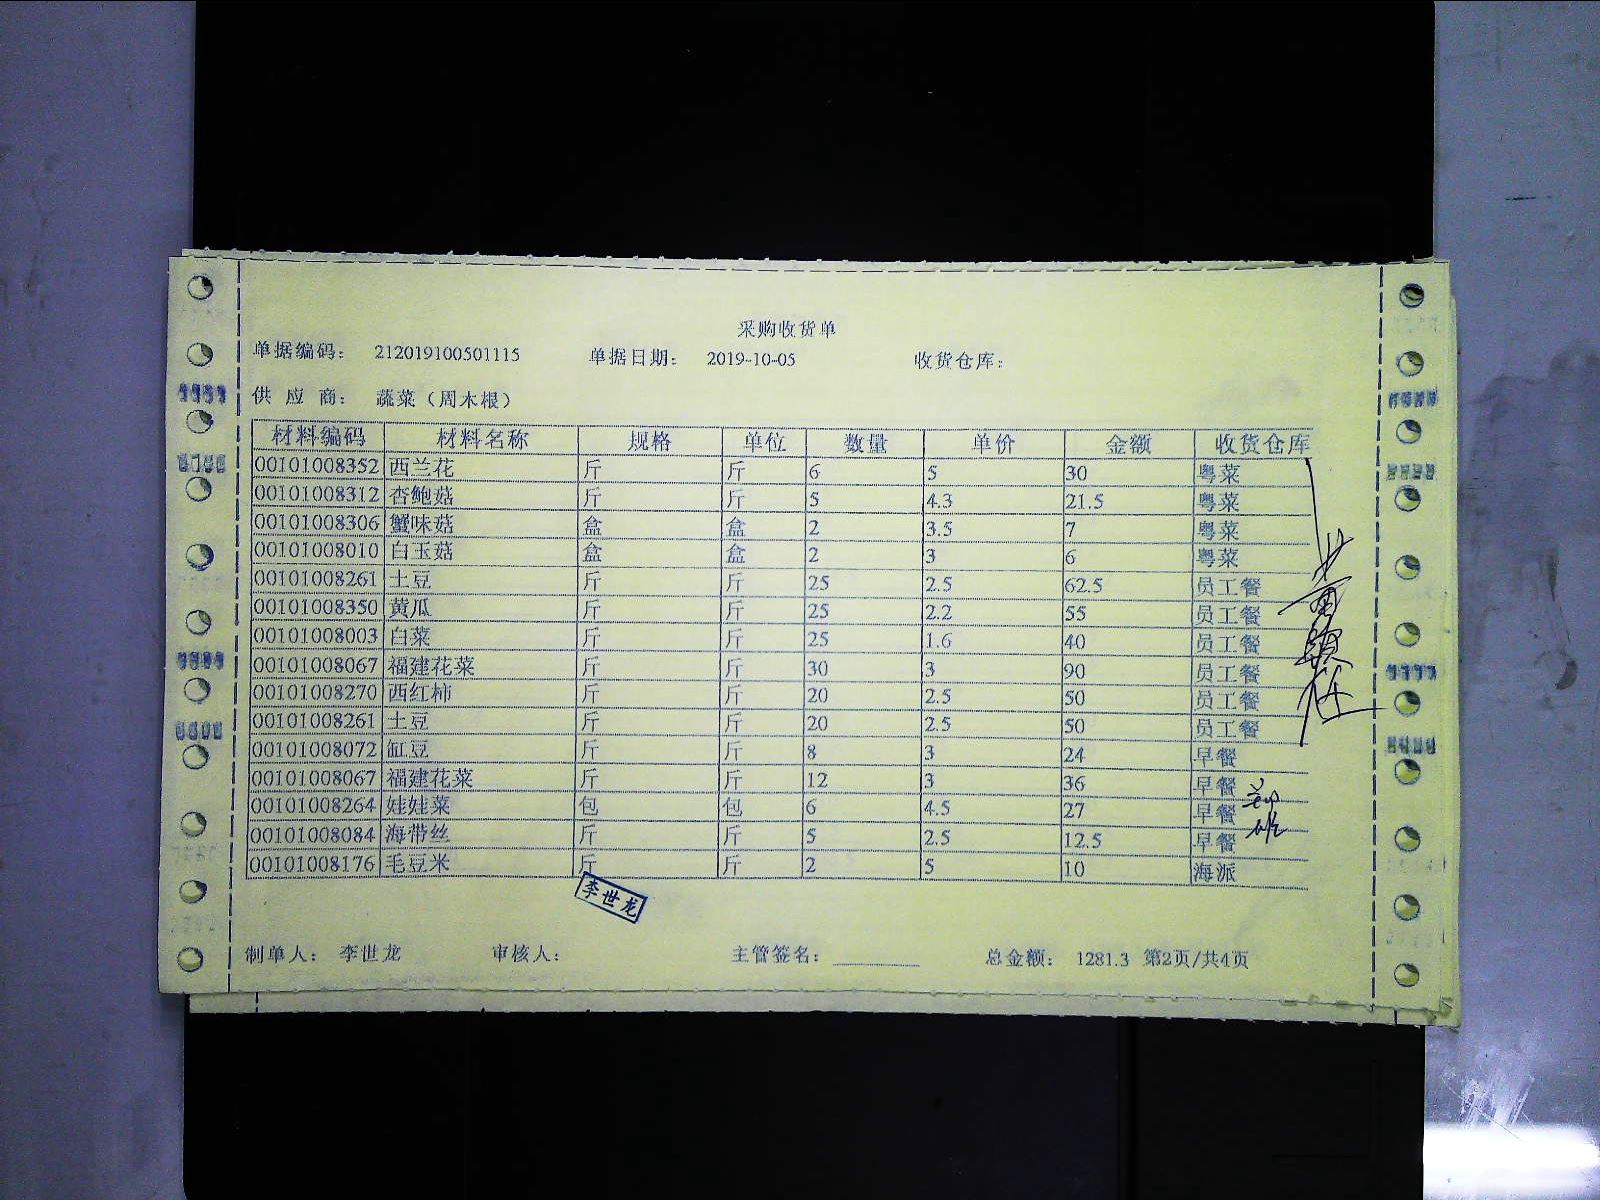 采购收货单
单据编码： 212019100501115 单据日期： 2019-10-05 收货仓库：
供 应 商： 蔬菜（周木根）
材料编码 材料名称 规格 单位 数量 单价 金额 收货仓库
00101008352 西兰花 斤 斤 6 5 30 粤菜
00101008312 杏鲍菇 斤 斤 5 4.3 21.5 粤菜
00101008306 蟹味菇 盒 盒 2 3.5 7 粤菜
00101008010 白玉菇 盒 盒 2 3 6 粤菜
00101008261 土豆 斤 斤 25 2.5 62.5 员工餐
00101008350 黄瓜 斤 斤 25 2.2 55 员工餐
00101008003 白菜 斤 斤 25 1.6 40 员工餐
00101008067 福建花菜 斤 斤 30 3 90 员工餐
00101008270 西红柿 斤 斤 20 2.5 50 员工餐
00101008261 土豆 斤 斤 20 2.5 50 员工餐
00101008072 缸豆 斤 斤 8 3 24 早餐
00101008067 福建花菜 斤 斤 12 3 36 早餐
00101008264 娃娃菜 包 包 6 4.5 27 早餐
00101008084 海带丝 斤 斤 5 2.5 12.5 早餐
00101008176 毛豆米 斤 斤 2 5 10 海派
李世龙
制单人： 李世龙 审核人： 主管签名： 总金额： 1281.3 第2页/共4页